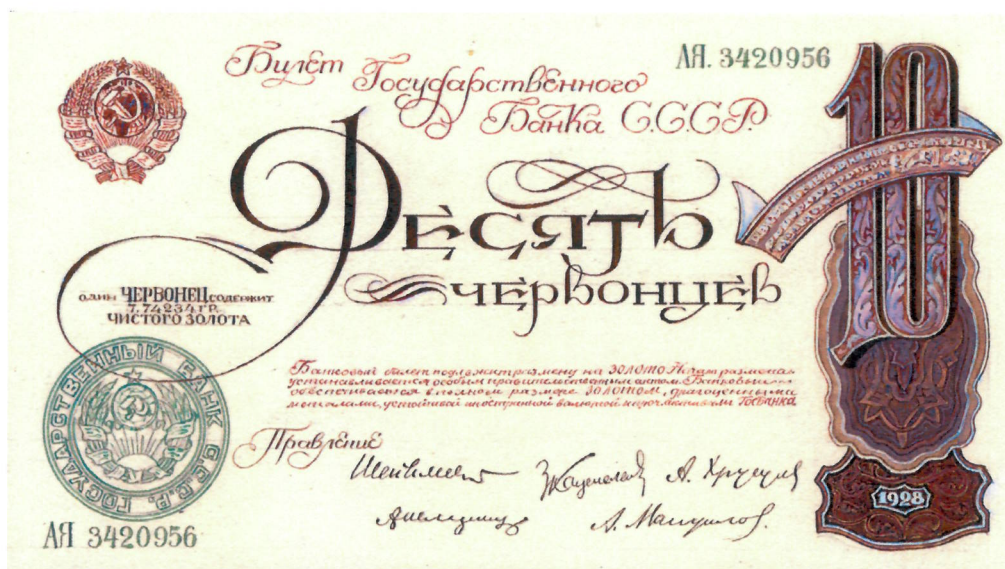 Билет Государственного
Банка С.С.С.Р.
АЯ. 3420956
10
Десять
червонцев
один ЧЕРВОНЕЦ содержит
7.74234 ГР.
ЧИСТОГО ЗОЛОТА
Банковый билет подлежит размену на золото.
устанавливается особым правительственным актом. Банковые
обеспечиваются в полном размере золотом, драгоценными
металлами, устойчивой иностранной валютой Госбанка
ГОСУДАРСТВЕННЫЙ БАНК С.С.С.Р.
Правление
АЯ 3420956
1928